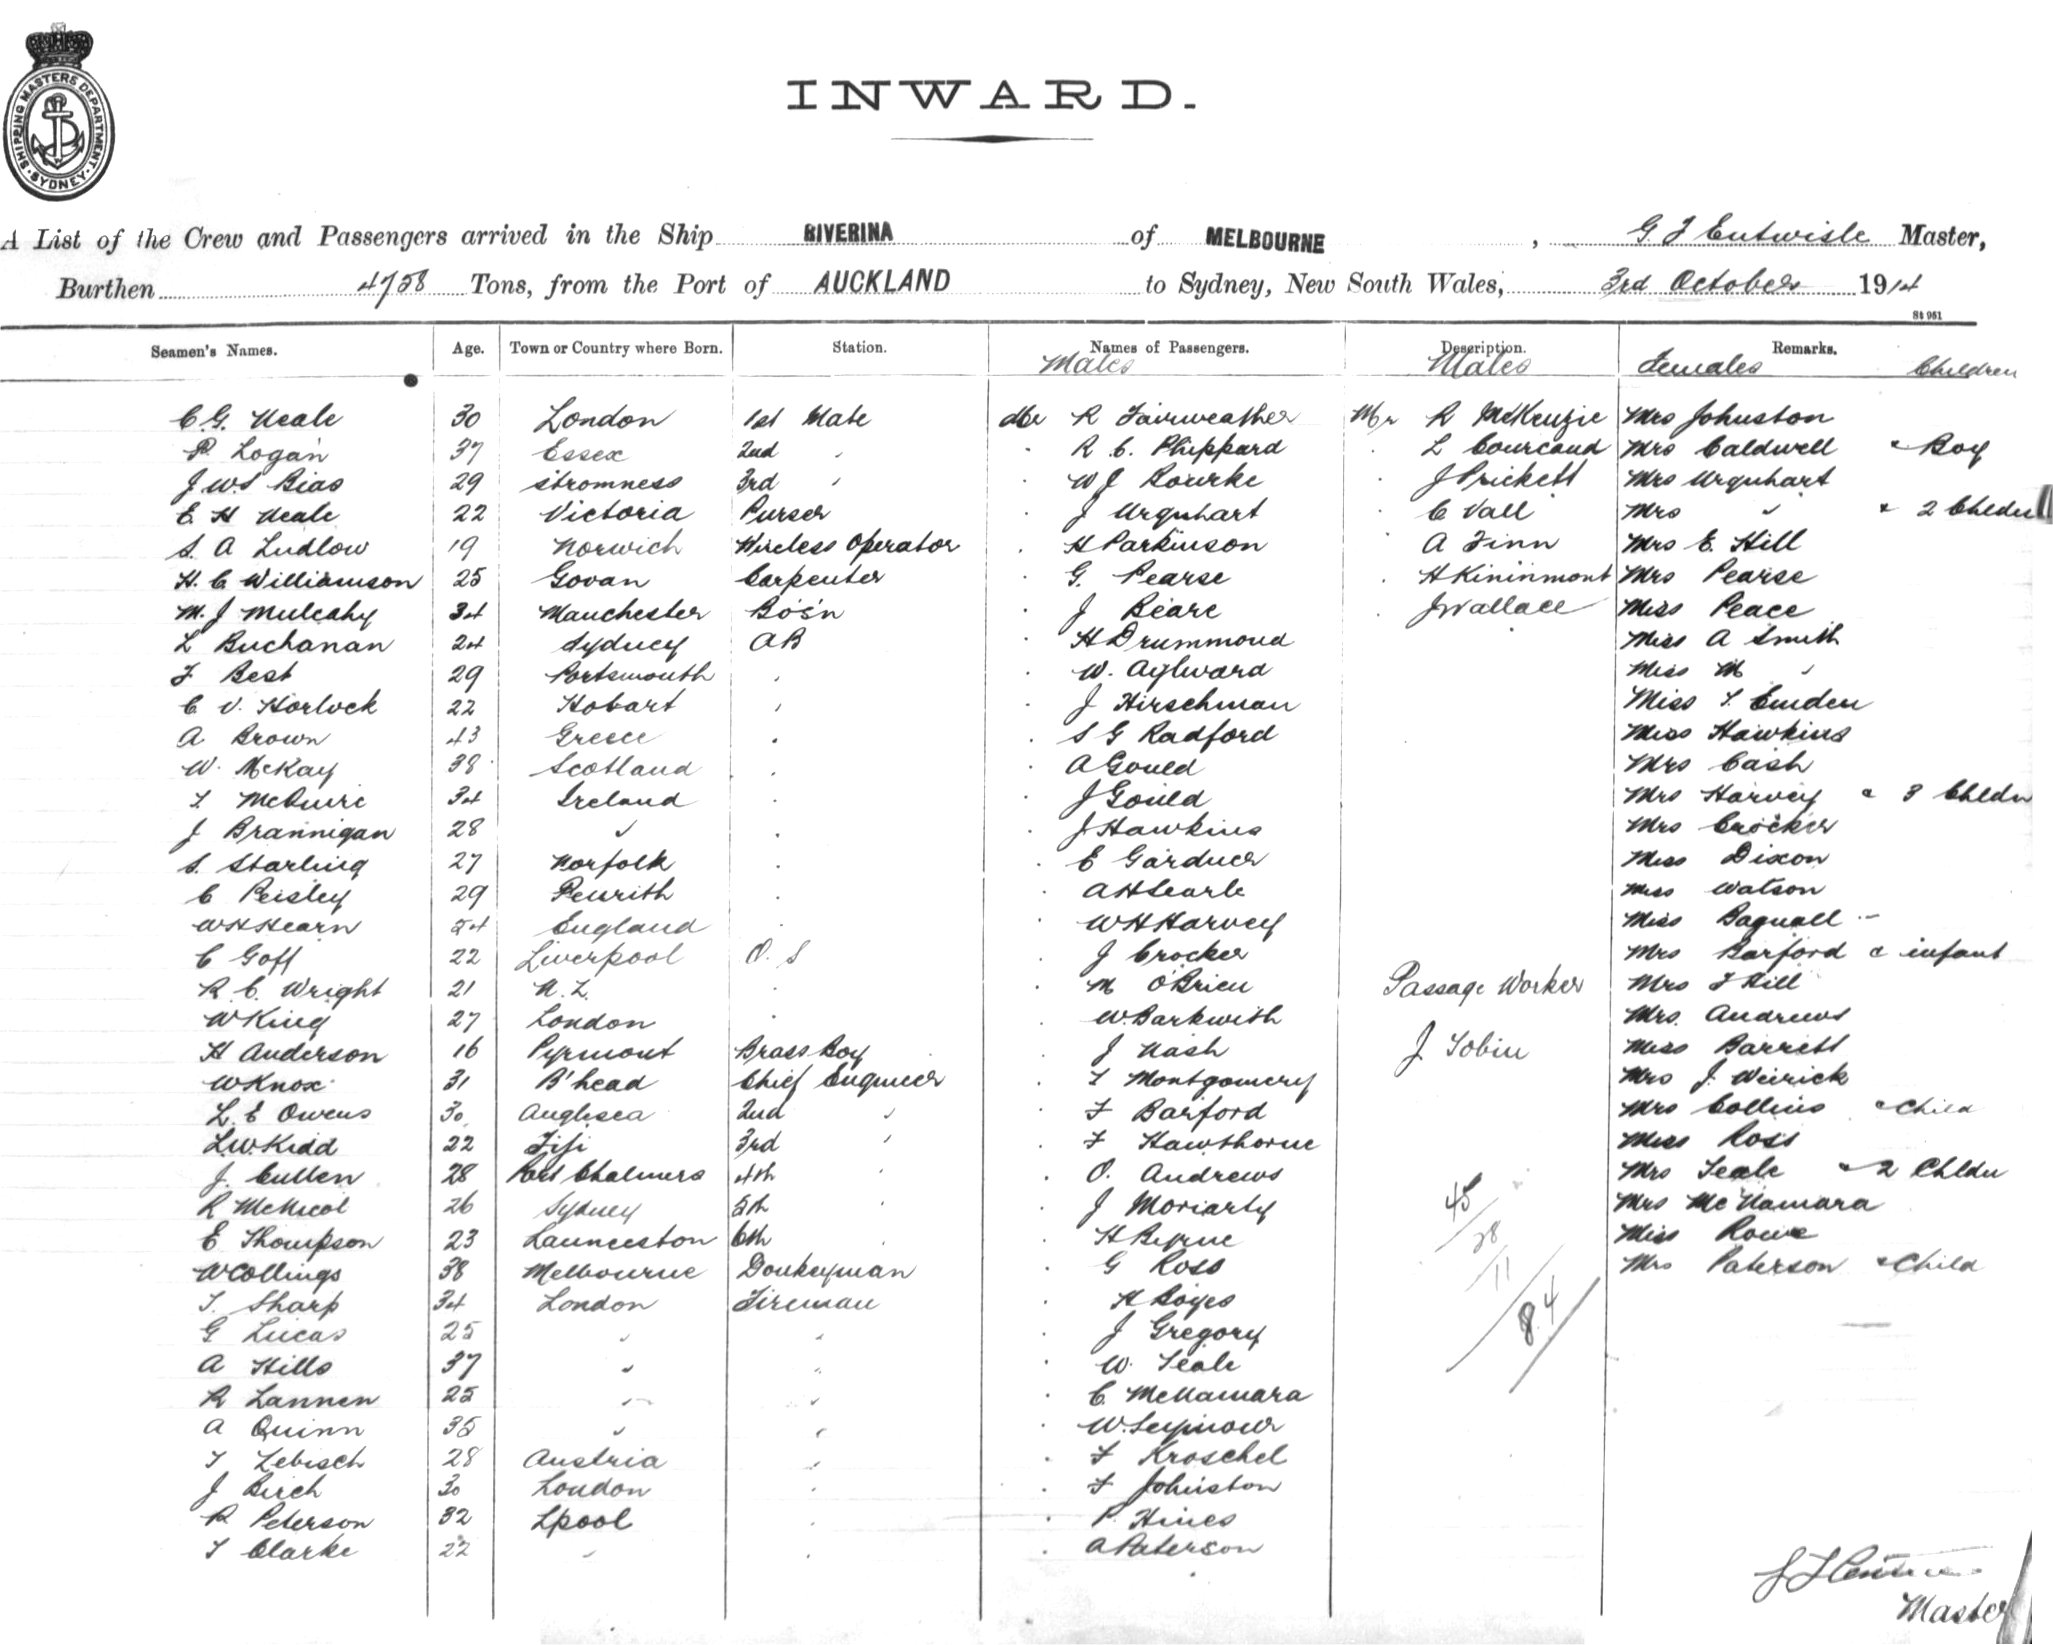 SHIPPING MASTERS DEPARTMENT · SYDNEY ·
INWARD.
A List of the Crew and Passengers arrived in the Ship RIVERINA of MELBOURNE, G. F Entwisle Master,
Burthen 4758 Tons, from the Port of AUCKLAND to Sydney, New South Wales, 3rd October 1914
St 951
Seamen's Names. Age. Town or Country where Born. Station. Names of Passengers. Description. Remarks.
Males Males Females Children
C. G. Neale 30 London 1st Mate Mr R Fairweather Mr R McKenzie Mrs Johnston
P. Logan 37 Essex 2nd " R. C. Phippard L Courcaud Mrs Caldwell & Boy
J W S Bias 29 Stromness 3rd " W J Rourke J Prickett Mrs Urquhart
E H Neale 22 Victoria Purser J Urquhart C Vall Mrs " & 2 Chldn
S. A Ludlow 19 Norwich Wireless Operator H Parkinson A Finn Mrs E. Hill
H. C Williamson 25 Govan Carpenter G. Pearse H Kininmont Mrs Pearse
M. J Mulcahy 34 Manchester Bos'n J Beare J Wallace Miss Peace
L Buchanan 24 Sydney AB H Drummond Miss A Smith
F Best 29 Portsmouth " W. Aylward Miss M "
C V. Horlock 22 Hobart " J Hirschman Miss T. Emden
A Brown 43 Greece " S G Radford Miss Hawkins
W. McKay 38 Scotland " A Gould Mrs Cash
T McGuire 34 Ireland " J Gould Mrs Harvey & 3 Chldn
J Brannigan 28 " " J Hawkins Mrs Crocker
S. Starling 27 Norfolk " E Gardner Miss Dixon
C Peisley 29 Penrith " A H Searle Miss Watson
W H Hearn 24 England " W H Harvey Miss Bagnall
C Goff 22 Liverpool O. S J Crocker Mrs Barford & infant
R. C. Wright 21 N. Z. " M O'Brien Passage Worker Mrs F Hill
W King 27 London " W. Barkwith Mrs. Andrews
H Anderson 16 Pyrmont Brass Boy J Nash J Tobin Miss Barrett
W Knox 31 B'head Chief Engineer T Montgomery Mrs J. Weirick
L. E Owens 30 Anglesea 2nd " F Barford Mrs Collins & Child
L. W. Kidd 22 Fiji 3rd " F Hawthorne Miss Ross
J. Cullen 28 Port Chalmers 4th " O. Andrews Mrs Teale & 2 Chldn
R McNicol 26 Sydney 5th " J Moriarty 45 Mrs McNamara
E Thompson 23 Launceston 6th " H Byrne 28 Miss Rowe
W Collings 38 Melbourne Donkeyman G Ross 11 Mrs Paterson & Child
T. Sharp 34 London Fireman H Boyes 84
G Lucas 25 " " J Gregory
A Hills 37 " " W. Teale
R Lannen 25 " " C. McNamara
A Quinn 35 " " W. Seymour
T Zebisch 28 Austria " F Kroschel
J Birch 30 London " F Johnston
R Peterson 32 Lpool " P. Hines
T Clarke 22 " " A Paterson
Master